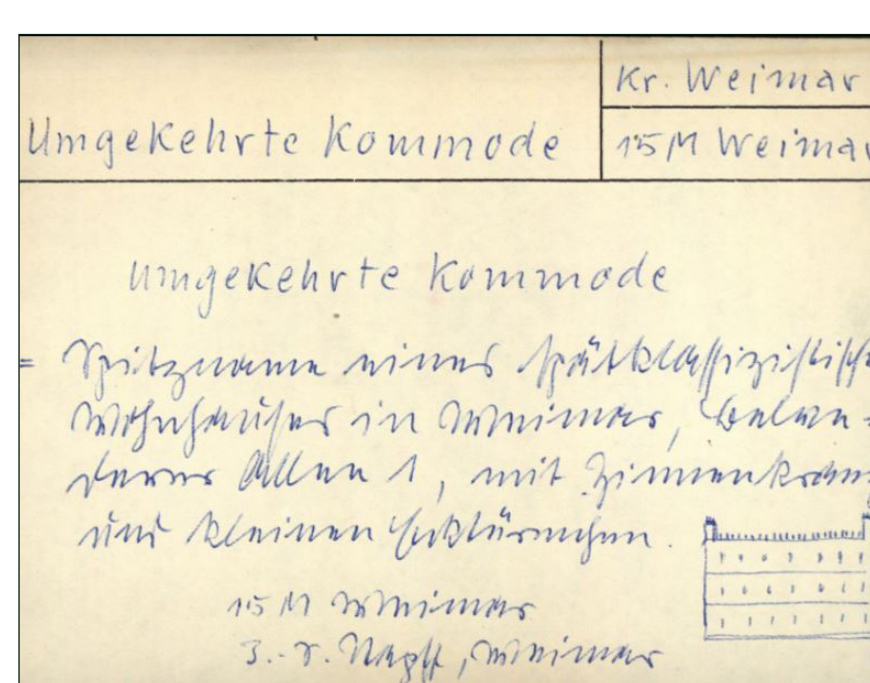 Kr. Weimar
Umgekehrte Kommode
15 M Weimar
Umgekehrte Kommode
= Spitzname eines spätklassizistische
Wohnhauses in Weimar, Belve=
derer Allee 1, mit Zinnenkranz
und kleinen Ecktürmchen.
15 M Weimar
3.- Weimar